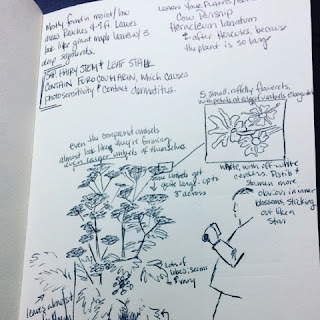 Mostly found in moist/low
areas. Reaches 4-9 ft. Leaves
look like giant maple leaves w/ 3
deep segments.
SAP, HAIRY STEM & LEAF STALK
CONTAIN FUROCOUMARIN, which causes
photosensitivity & contact dermatitis.
LEARN YOUR PLANTS
Cow Parsnip
Heracleum lanatum
after Hercules, because
the plant is so large
5 small, ruffely flowerets,
with petals at edge of umbels elongated
even the compound umbels
almost look like they're forming
even larger umbels of themselves.
umbels get
quite large, up to
across
White, with off-white
centers. Pistil &
stamen more
obvious in inner
blossoms, sticking
out like a
star
Lots of
blows, seems
leaves almost